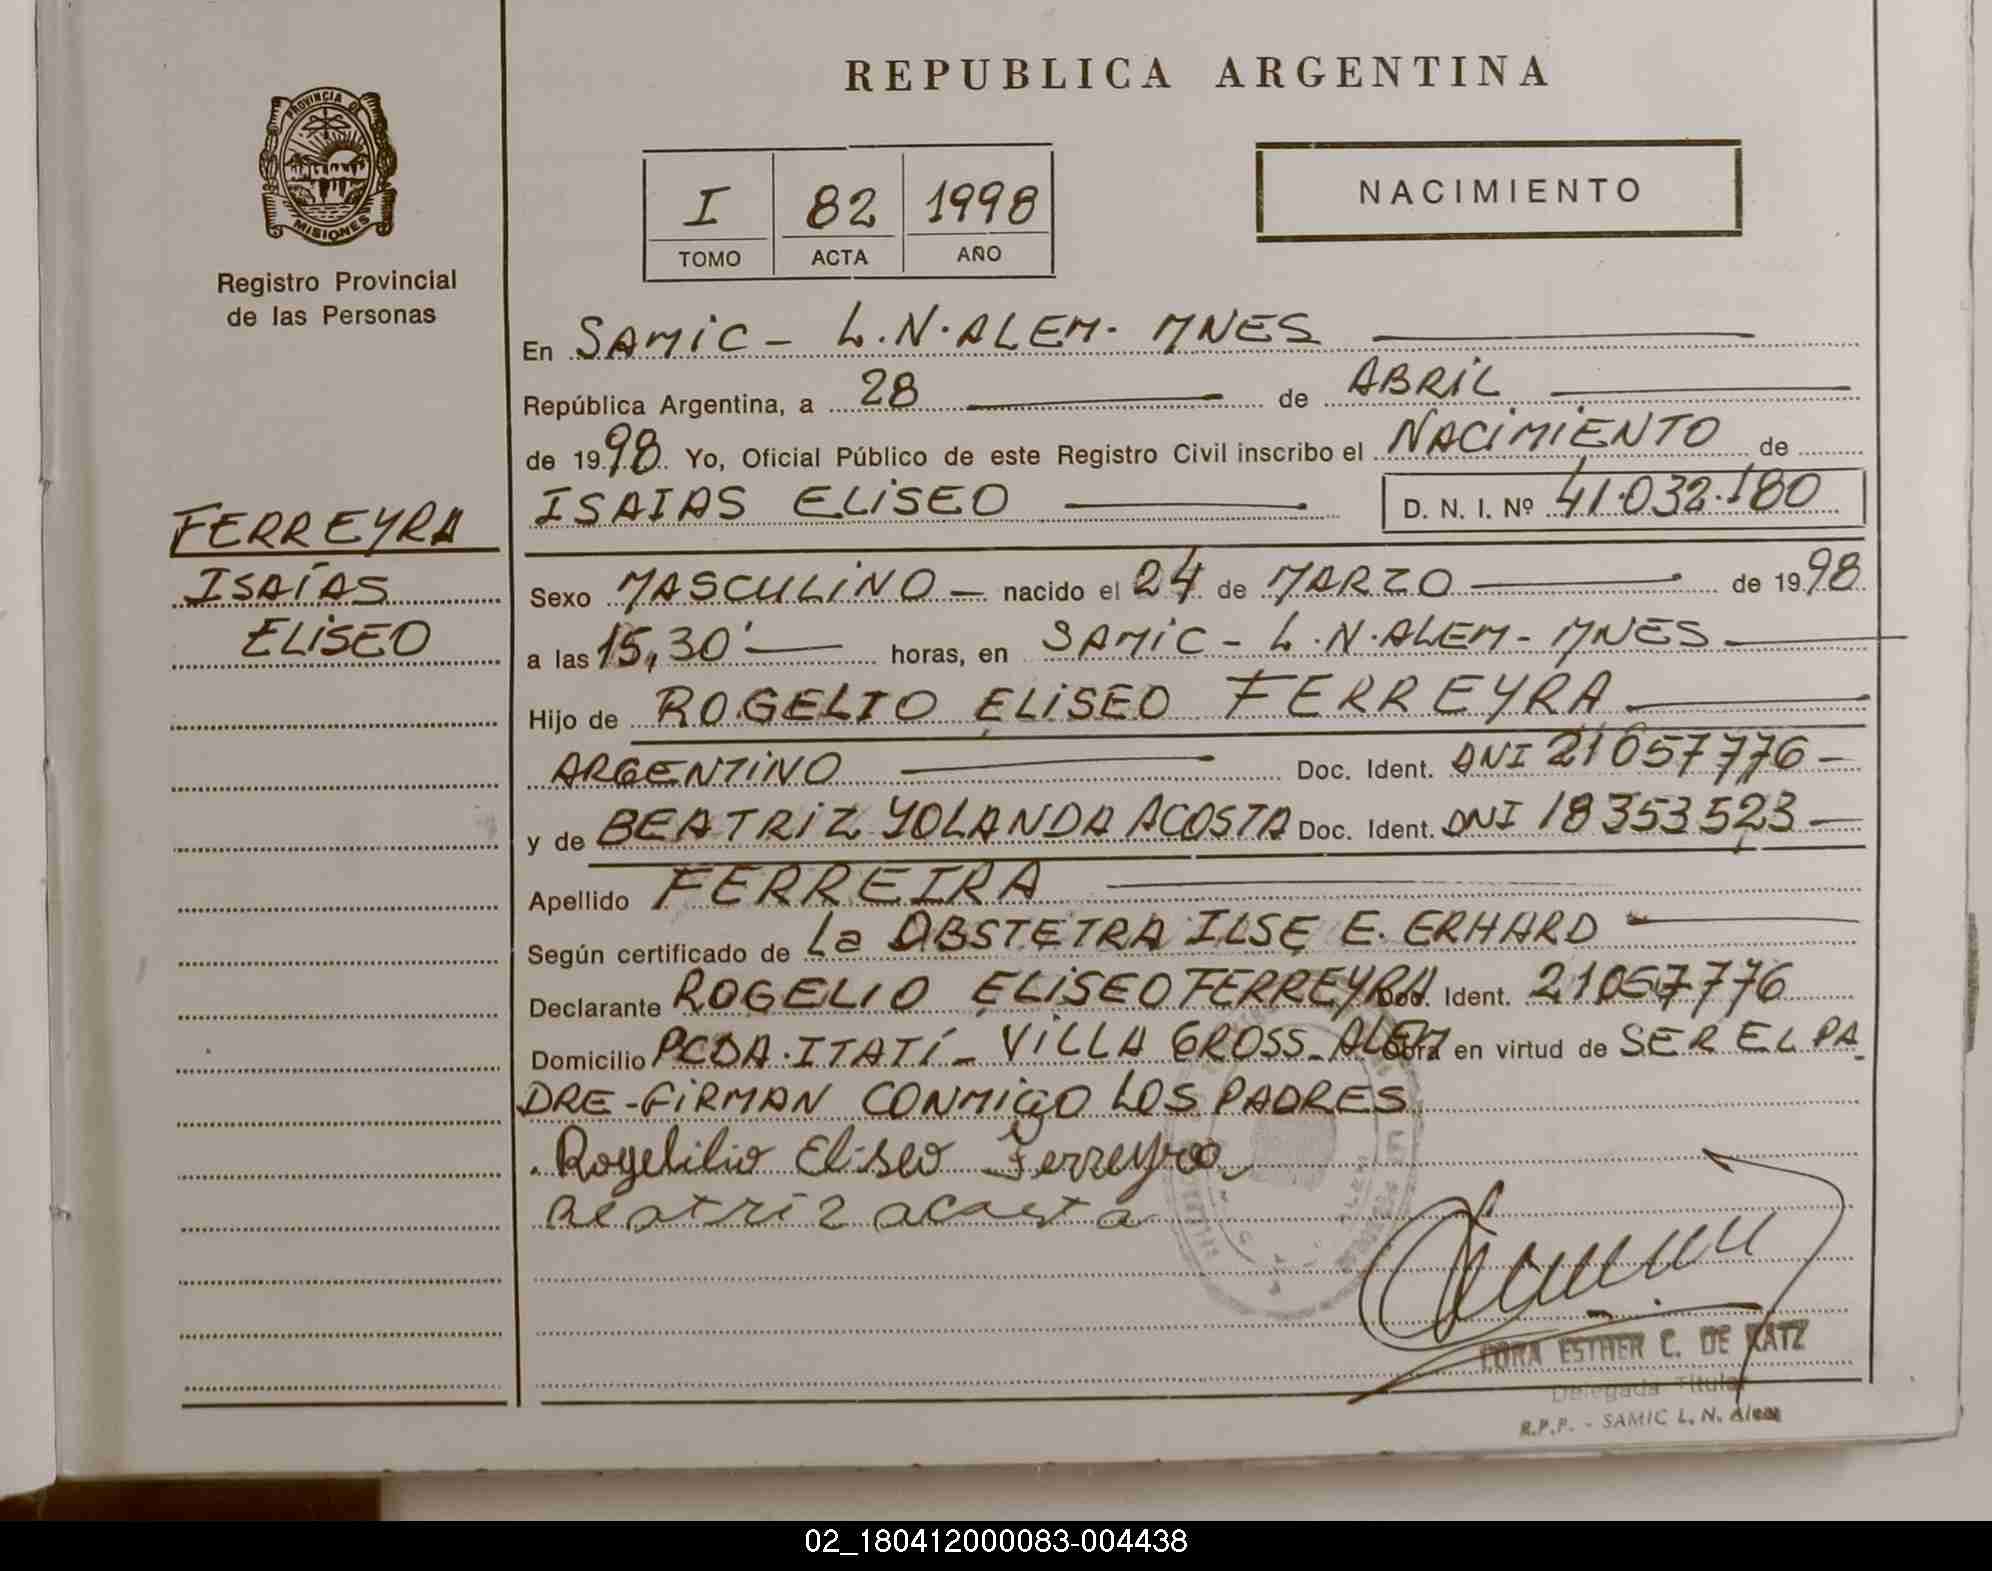 REPUBLICA ARGENTINA
PROVINCIA DE
MISIONES
Registro Provincial
de las Personas
I 82 1998
TOMO ACTA AÑO
NACIMIENTO
En SAMIC - L.N. ALEM - MNES
República Argentina, a 28 de ABRIL
de 1998. Yo, Oficial Público de este Registro Civil inscribo el NACIMIENTO de
ISAIAS ELISEO D. N. I. Nº 41.032.180
FERREYRA
ISAÍAS
ELISEO
Sexo MASCULINO - nacido el 24 de MARZO de 1998
a las 15,30' horas, en SAMIC - L.N. ALEM - MNES
Hijo de ROGELIO ELISEO FERREYRA
ARGENTINO Doc. Ident. DNI 21057776 -
y de BEATRIZ YOLANDA ACOSTA Doc. Ident. DNI 18353523 -
Apellido FERREIRA
Según certificado de La OBSTETRA ILSE E. ERHARD
Declarante ROGELIO ELISEO FERREYRA Doc. Ident. 21057776
Domicilio PCDA. ITATÍ - VILLA GROSS - ALEM Obra en virtud de SER EL PA
DRE - FIRMAN CONMIGO LOS PADRES
Rogelilio Eliseo Ferreyra
Beatriz acosta
ESTHER C. DE KATZ
Delegada Titular
R.P.P. - SAMIC L. N. Alem
02_180412000083-004438